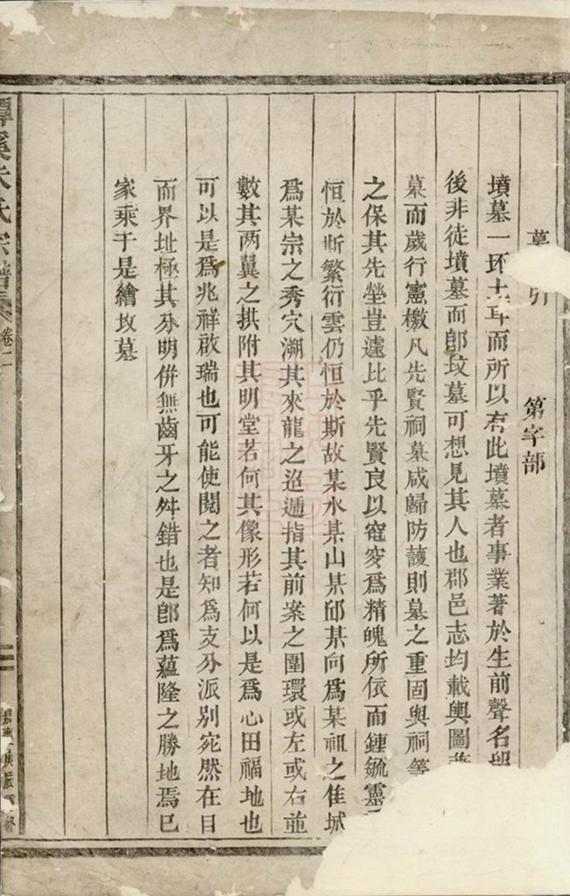 墓 引 第字部
墳墓一抔土耳而所以有此墳墓者事業著於生前聲名
後非徒墳墓而卽墳墓可想見其人也郡邑志均載輿圖
墓而歲行憲檄凡先賢祠墓咸歸防護則墓之重固與祠等
之保其先塋豈遽比乎先賢良以窀穸爲精魄所依而鍾毓靈
恒於斯繁衍雲仍恒於斯故某水某山某邱某向爲某祖之佳城
爲某宗之秀穴溯其來龍之迢遞指其前案之圍環或左或右並
數其两翼之拱附其明堂若何其像形若何以是爲心田福地也
可以是爲兆祥啟瑞也可能使閱之者知爲支分派别宛然在目
而界址極其分明併無齒牙之舛錯也是卽爲蘊隆之勝地焉已
家乘于是繪坟墓
氏宗譜 卷二